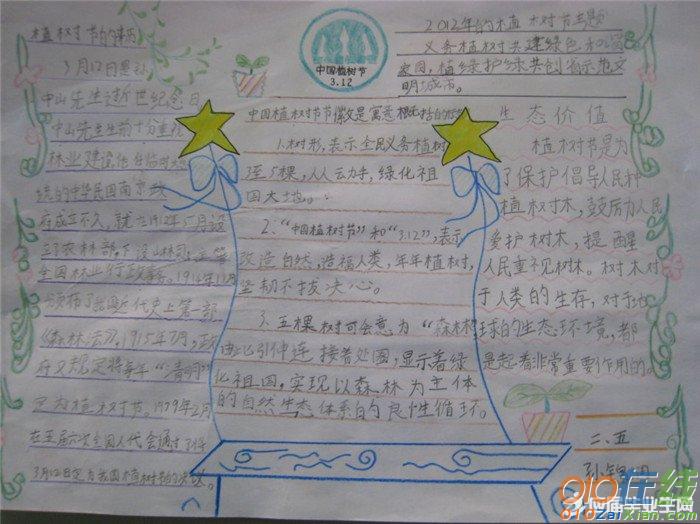 植树节的来历
3月12日是孙
中山先生逝世纪念日
中山先生生前十分重视
林业建设他在临时大总
统的中华民国南京政
府成立不久,就在1912年5月设
了农林部,下设山林司,主管
全国林业行政事务。1914年11月
颁布了我国近代史上第一部
《森林法》,1915年7月,政
府又规定将每年"清明"
定为植树节。1979年2月
在五届六次全国人代会通过了将
3月12日定为我国植树节的决议
中国植树节
3.12
中国植树节节徽是寓意
1.树形,表示全民义务植树
3至5棵,人人动手,绿化祖
国大地。
2."中国植树节"和"3.12",表示
改造自然,造福人类,年年植树,
坚韧不拔决心。
3.五棵树可会意为"森林"
由此引伸连接着处圈,显示着绿
化祖国,实现以森林为主体
的自然生态体系的良性循环。
2012年的植树节主题
义务植树共建绿色和谐
家园,植绿护绿共创省示范文
明城市。
生态价值
植树节是为
了保护倡导人民种
植树木,鼓厉为人民
爱护树木,提醒
人民重视树林。树木对
于人类的生存,对于地
球的生态环境,都
是起着非常重要作用的。
二、五
910在线
应届毕业生网
910ZaiXian.com